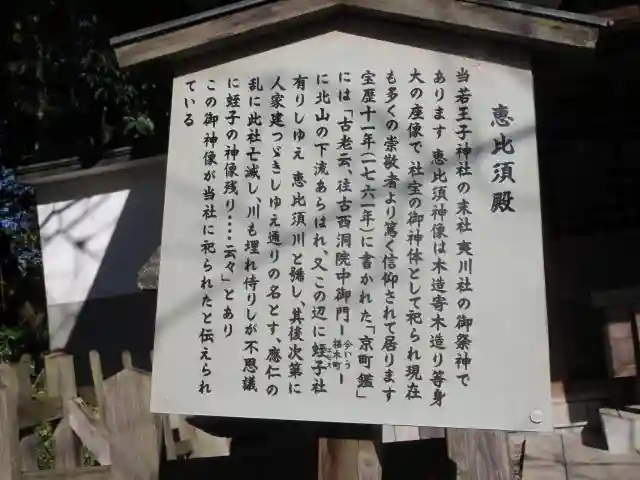 恵比須殿
当若王子神社の末社 夷川社の御祭神で
あります 恵比須神像は木造寄木造り等身
大の座像で 社宝の御神体として祀られ現在
も多くの崇敬者より篤く信仰されて居ります
宝歴十一年(一七六一年)に書かれた「京町鑑」
には「古老云、往古西洞院中御門ー今いう椹木町ー
に北山の下流あらはれ、又この辺に蛭子社
有りしゆえ 恵比須川と號し、其後次第に
人家建つゞきしゆえ通りの名とす、應仁の
乱に此社亡滅し、川も埋れ侍りしが不思議
に蛭子の神像残り・・・云々」とあり
この御神像が当社に祀られたと伝えられ
ている